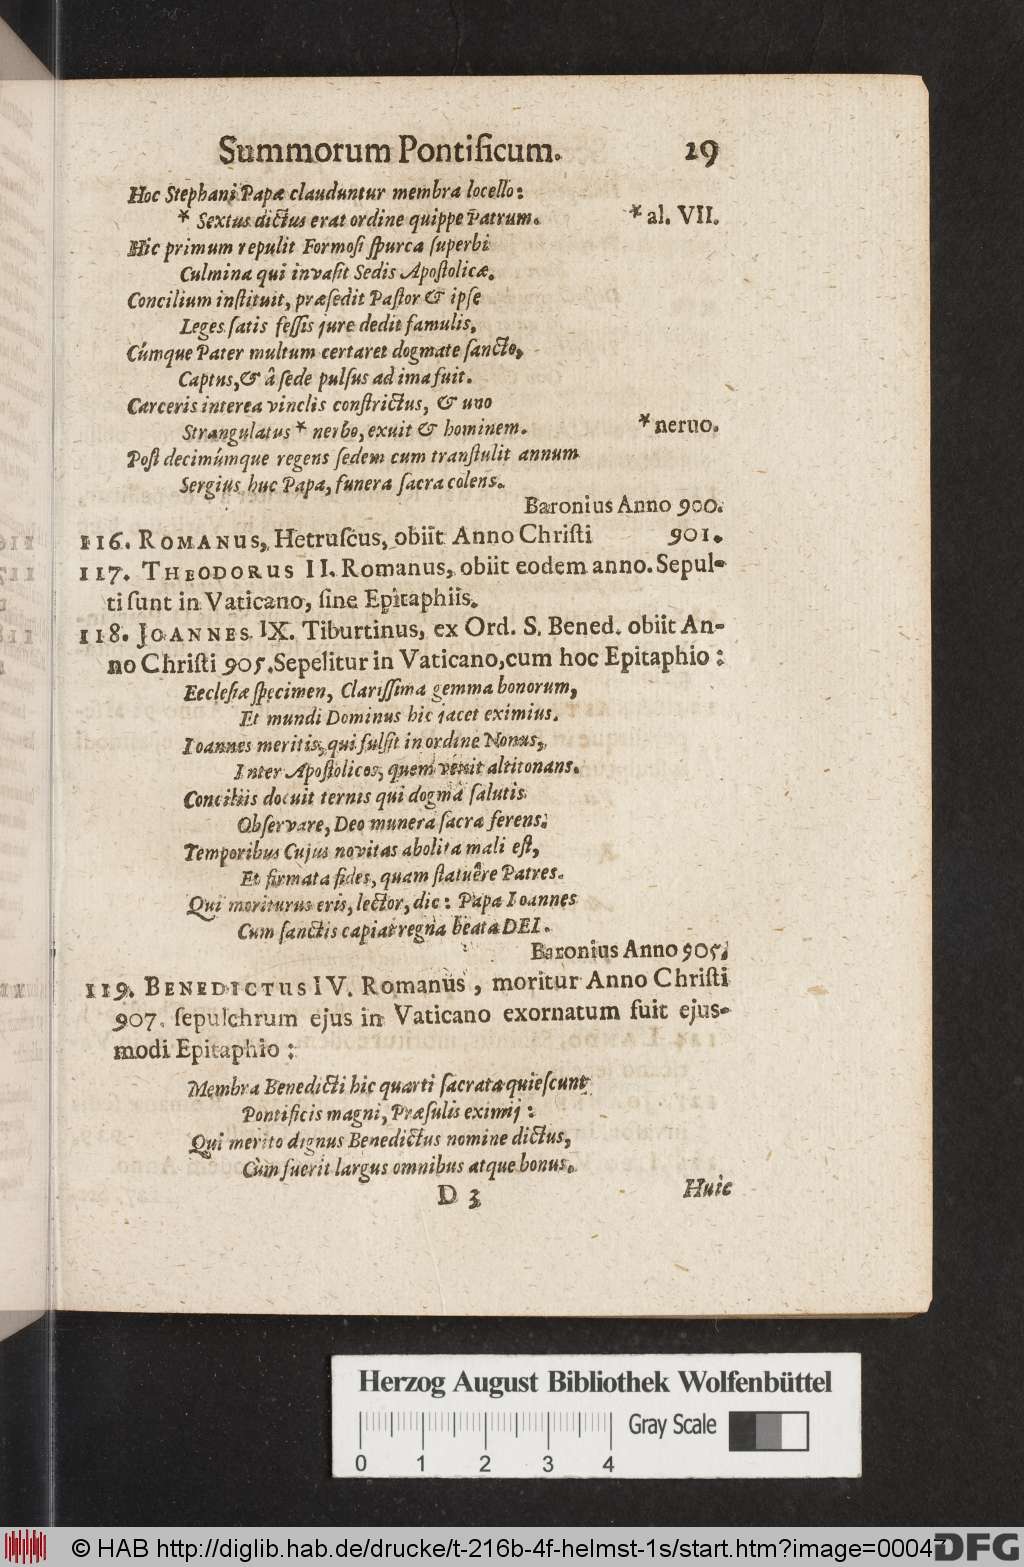 Summorum Pontificum. 29
Hoc Stephani Papæ clauduntur membra locello:
* Sextus dictus erat ordine quippe Patrum. * al. VII.
Hic primum repulit Formosi ſpurca ſuperbi
Culmina qui invaſit Sedis Apoſtolicæ.
Concilium inſtituit, præſedit Paſtor & ipſe
Leges ſatis feſſis jure dedit famulis,
Cúmque Pater multum certaret dogmate ſancto,
Captus, & â ſede pulſus ad ima fuit.
Carceris interea vinclis conſtrictus, & uno
Strangulatus * nerbo, exuit & hominem. * neruo.
Poſt decimúmque regens ſedem cum tranſtulit annum
Sergius huc Papa, funera ſacra colens.
Baronius Anno 900.
116. ROMANUS, Hetruſcus, obiit Anno Chriſti 901.
117. THEODORUS II. Romanus, obiit eodem anno. Sepul-
ti ſunt in Vaticano, ſine Epitaphiis.
118. JOANNES IX. Tiburtinus, ex Ord. S. Bened. obiit An-
no Chriſti 905. Sepelitur in Vaticano, cum hoc Epitaphio:
Eccleſiæ ſpecimen, Clariſſima gemma bonorum,
Et mundi Dominus hic jacet eximius.
Ioannes meritis, qui fulſit in ordine Nonus,
Inter Apoſtolicos, quem venit altitonans.
Conciliis docuit ternis qui dogma ſalutis
Obſervare, Deo munera ſacra ferens:
Temporibus Cujus novitas abolita mali eſt,
Et firmata fides, quam ſtatuêre Patres.
Qui moriturus eris, lector, dic: Papa Ioannes
Cum ſanctis capiat regna beata DEI.
Baronius Anno 905.
119. BENEDICTUS IV. Romanus, moritur Anno Chriſti
907. ſepulchrum ejus in Vaticano exornatum fuit ejus-
modi Epitaphio:
Membra Benedicti hic quarti ſacrata quieſcunt
Pontificis magni, Præſulis eximij:
Qui merito dignus Benedictus nomine dictus,
Cùm fuerit largus omnibus atque bonus.
D 3 Huic
Herzog August Bibliothek Wolfenbüttel
Gray Scale
0 1 2 3 4
© HAB http://diglib.hab.de/drucke/t-216b-4f-helmst-1s/start.htm?image=00047
DFG